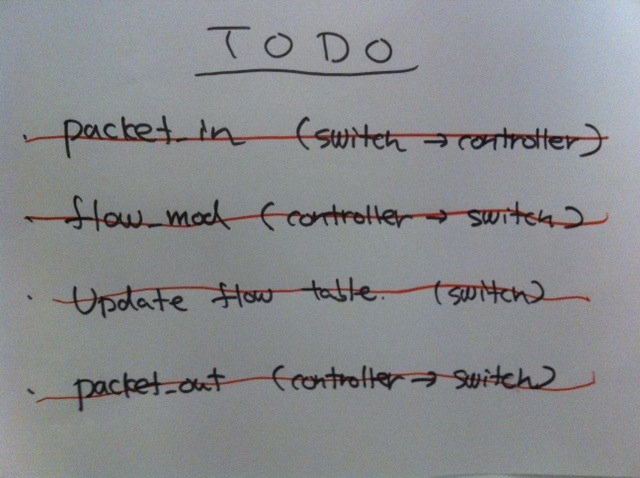 TODO
· packet_in (switch → controller)
· flow_mod (controller → switch)
· Update flow table. (switch)
· packet_out (controller → switch)